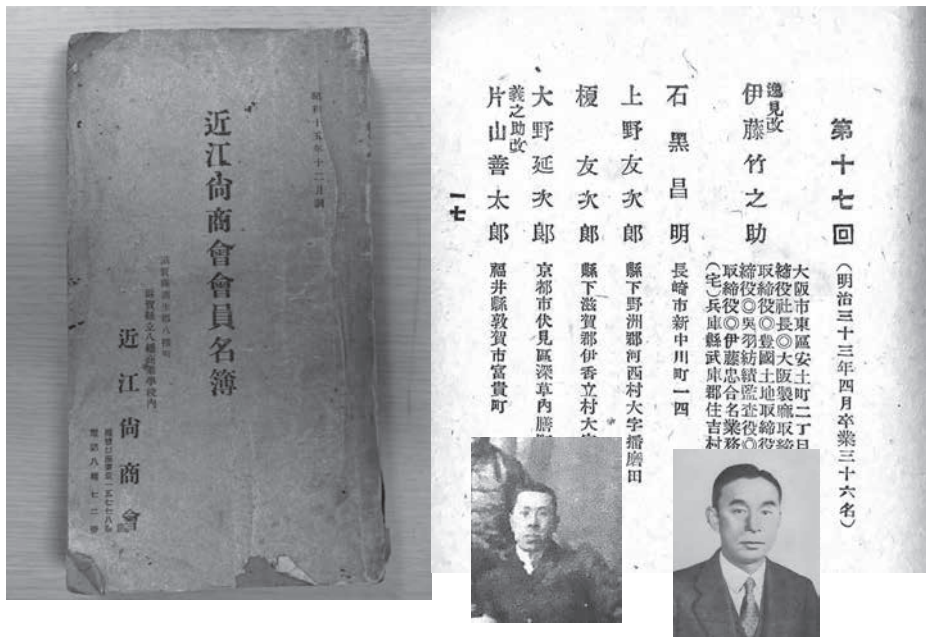 昭和十五年十二月調
近江尙商會會員名簿
滋賀縣蒲生郡八幡町
滋賀縣立八幡商業學校內
近江尙商會
第十七回
(明治三十三年四月卒業三十六名)
逸見改
伊藤竹之助
大阪市東區安土町二丁目
締役社長◎大阪製麻取締
取締役◎豊國土地取締役
締役◎吳羽紡績監査役◎
取締役◎伊藤忠合名業務
(宅)兵庫縣武庫郡住吉村
石黑昌明
長崎市新中川町一四
上野友次郎
縣下野洲郡河西村大字播磨田
榎友次郎
縣下滋賀郡伊香立村大字
大野延次郎
京都市伏見區深草內膳町
義之助改
片山善太郎
福井縣敦賀市富貴町
一七